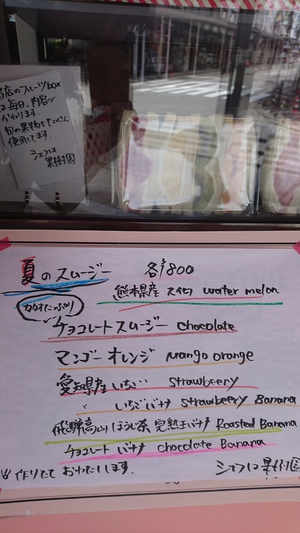 当店のフルーツbox
は毎日、内容が
かわります
旬の果物をたくさん
使用してます。
シェフは
果樹園
夏のスムージー 各¥800
カカオたっぷり
熊本県産 スイカ water melon
チョコレートスムージー chocolate
マンゴーオレンジ Mango orange
愛知県産 いちご Strawbeery
いちごバナナ Strawbeery Banana
飛騨高山 ほうじ茶 完熟王バナナ Roasted Banana
チョコレートバナナ chocolate Banana
作りたて おわたしします。
シェフは果樹園